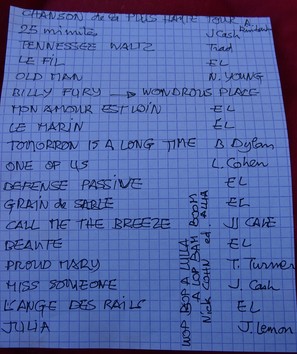 CHANSON de la PLUS HAUTE TOUR A. Rimbaud
25 minutes J Cash
TENNESSEE WALTZ Trad
LE FIL EL
OLD MAN N. YOUNG
BILLY FURY → WONDROUS PLACE
MON AMOUR EST LOIN EL
LE MARIN EL
TOMORROW IS A LONG TIME B Dylan
ONE OF US L. Cohen
DEFENSE PASSIVE EL
GRAIN de SABLE EL
CALL ME THE BREEZE JJ CALE
BEAUTE EL
PROUD MARY T. Turner
MISS SOMEONE J. Cash
L'ANGE DES RAILS EL
JULIA J Lennon
WOP BOP A LULA
A LOP BAM BOOM
Nick COHN ed. ALLIA